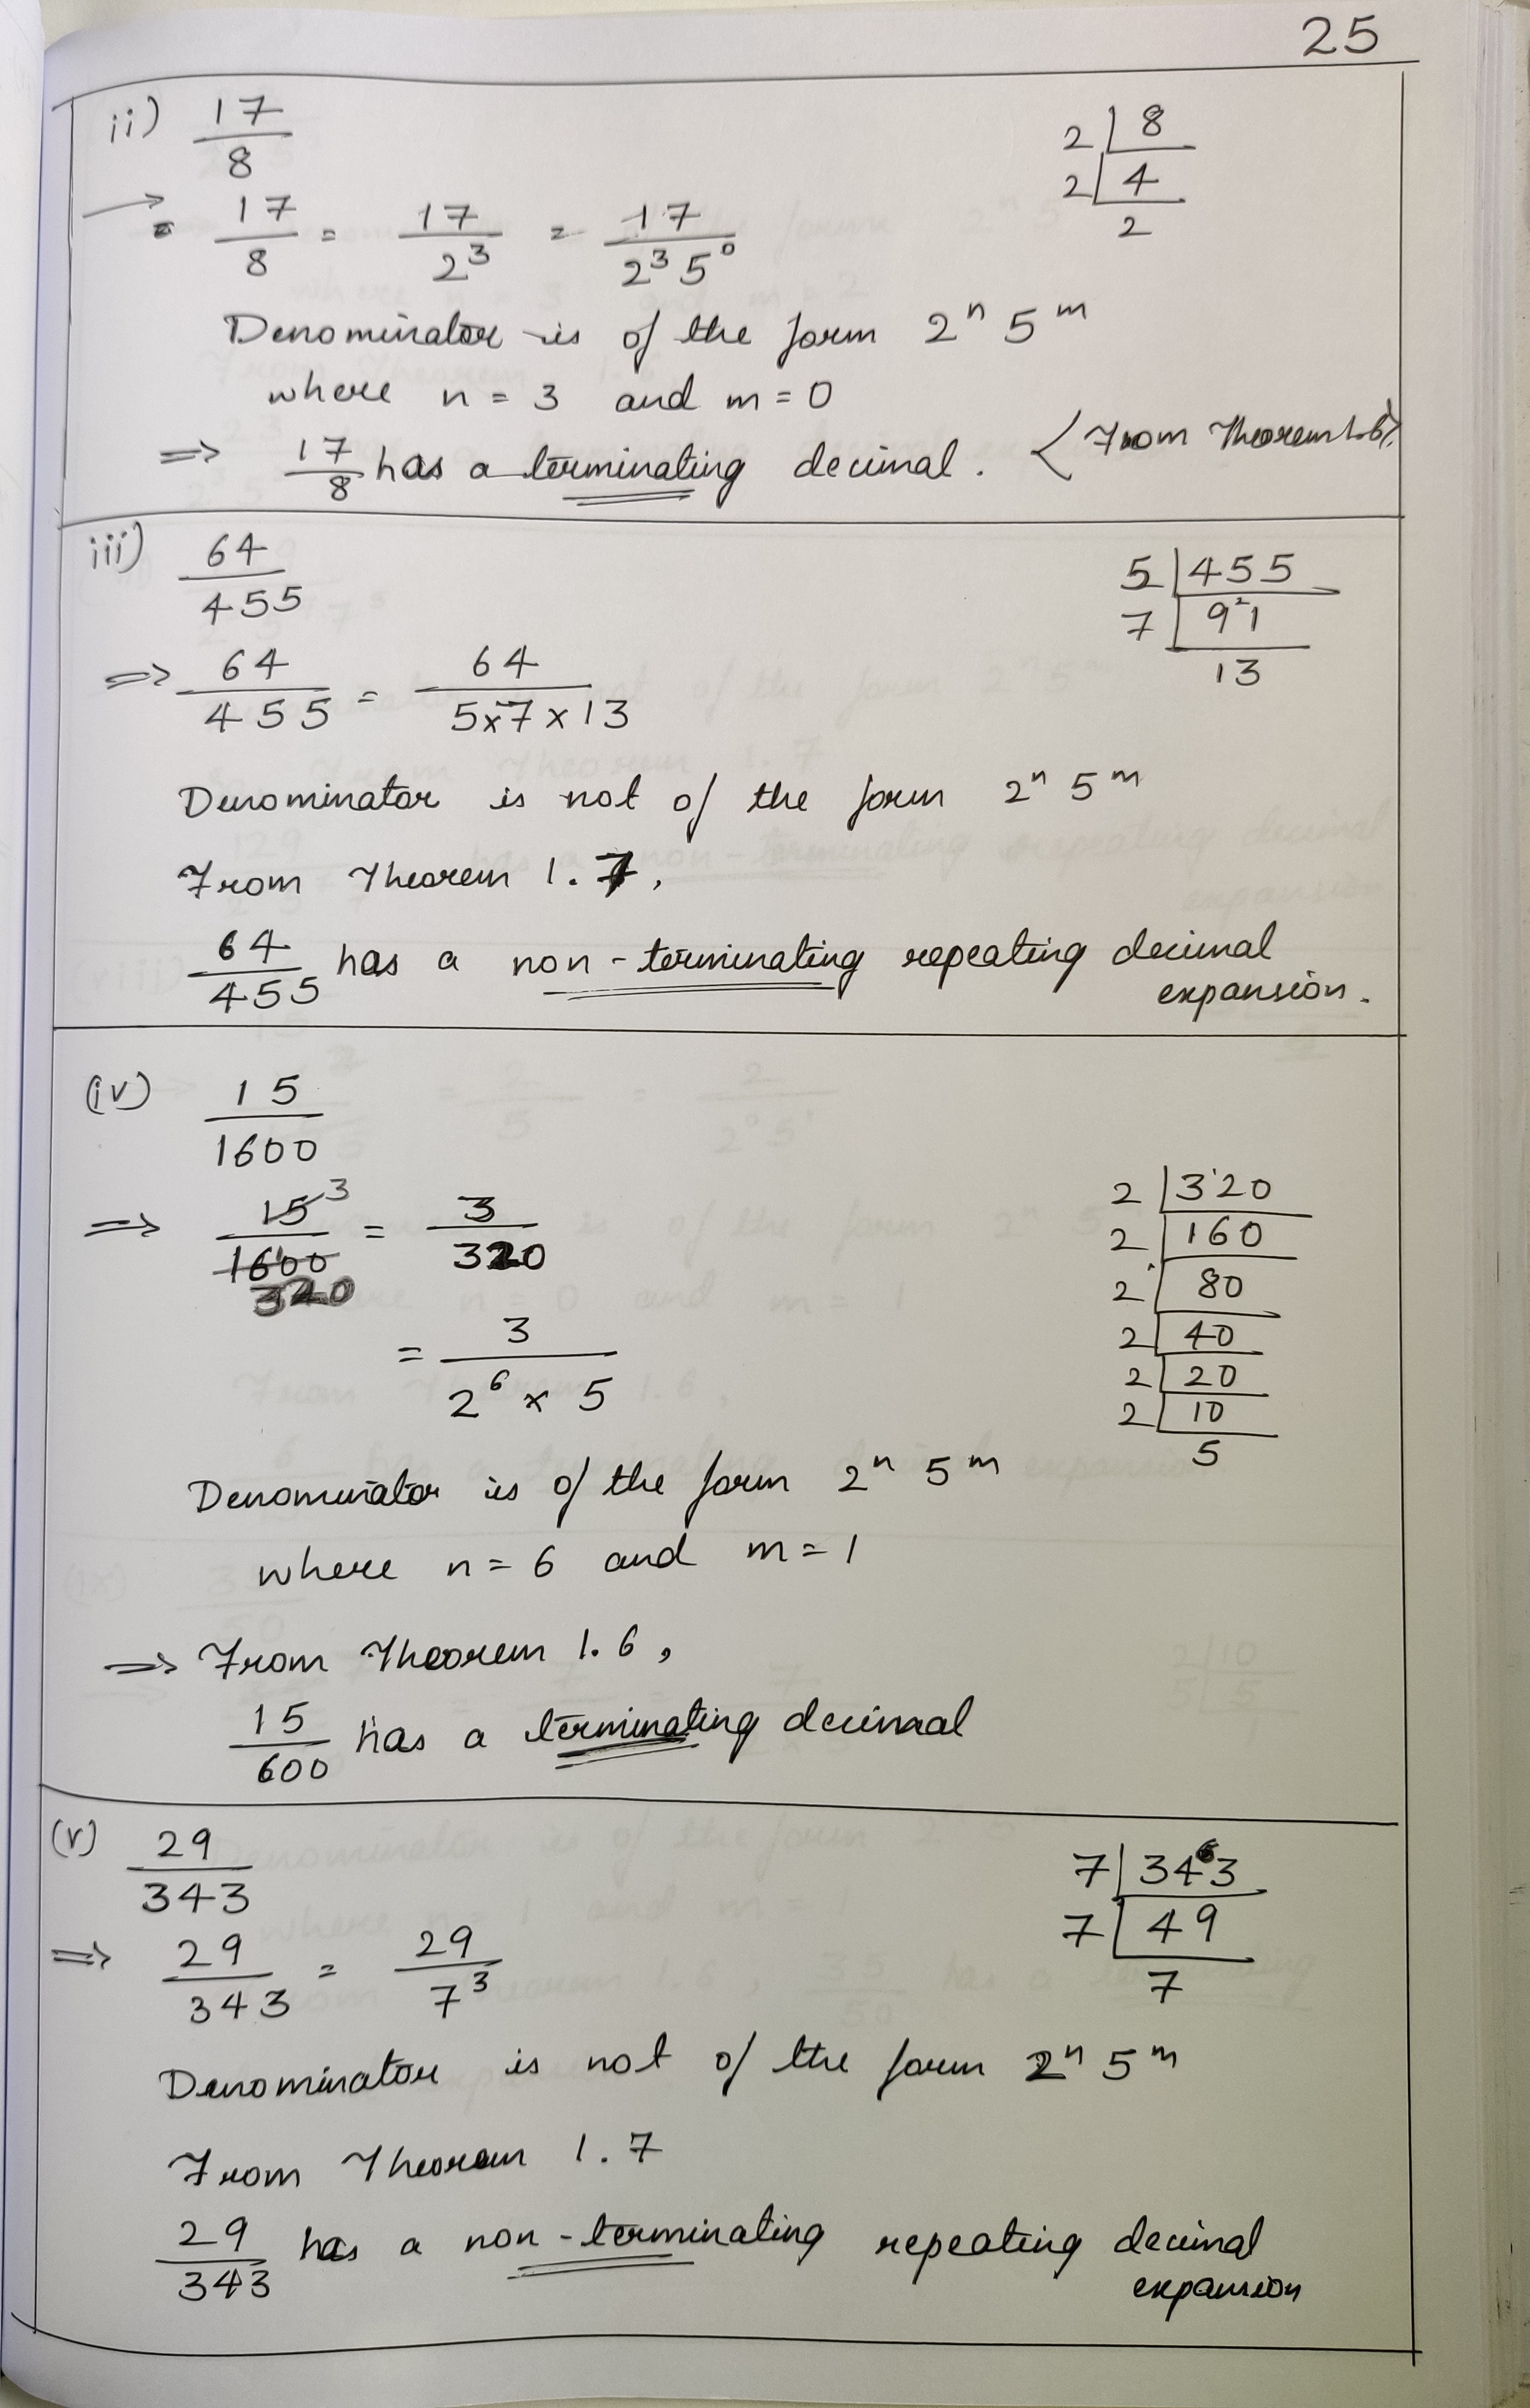 25
ii) 17/8
2 | 8
2 | 4
2
→ = 17/8 = 17/2³ = 17/2³ 5⁰
Denominator is of the form 2ⁿ 5ᵐ
where n = 3 and m = 0
⇒ 17/8 has a terminating decimal. < From Theorem 1.6 >
iii) 64/455
5 | 455
7 | 91
13
⇒ 64/455 = 64/5×7×13
Denominator is not of the form 2ⁿ 5ᵐ
From Theorem 1.7,
64/455 has a non-terminating repeating decimal
expansion.
(iv) 15/1600
2 | 320
2 | 160
2 | 80
2 | 40
2 | 20
2 | 10
5
⇒ 15 3/1600 320 = 3/320
= 3/2⁶ × 5
Denominator is of the form 2ⁿ 5ᵐ
where n = 6 and m = 1
⇒ From Theorem 1.6,
15/600 has a terminating decimaal
(v) 29/343
7 | 34⁶3
7 | 49
7
⇒ 29/343 = 29/7³
Denominator is not of the form 2ⁿ 5ᵐ
From Theorem 1.7
29/343 has a non-terminating repeating decimal
expansion